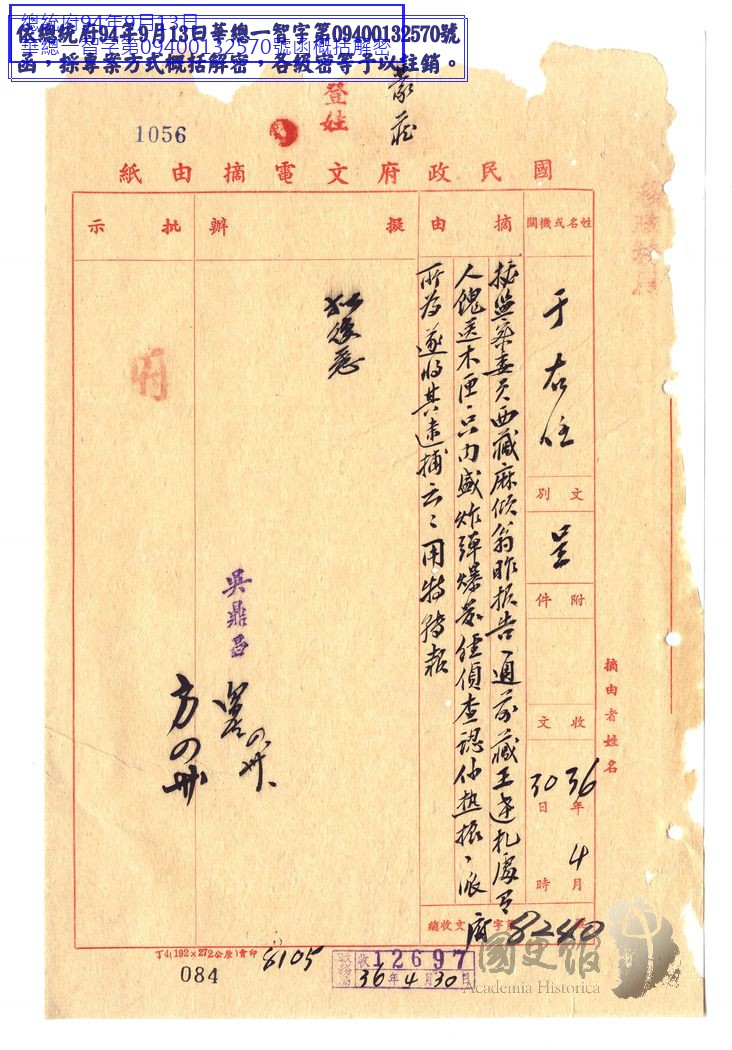 總統府94年9月13日
華總一智字第09400132570號函概括解密
依總統府94年9月13日華總一智字第09400132570號
函，採專案方式概括解密，各級密等予以註銷。
蒙藏
登姓
1056
國民政府文電摘由紙
姓名或機關
于右任
文別
呈
附件
收文
36年4月30日時
摘由
據監察委員西藏麻傾翁昨報告一通前藏王達扎處有
人餽送木匣一只內盛炸彈爆發經偵查認係熱振、派
所為遂將其逮捕云、用特轉報
擬辦
批示
吳鼎昌
摘由者姓名
總收文 字
府 8240
丁4(192×272公厘)會印
8105
084
政務局
收12697
36年4月30日
國史館
Academia Historica